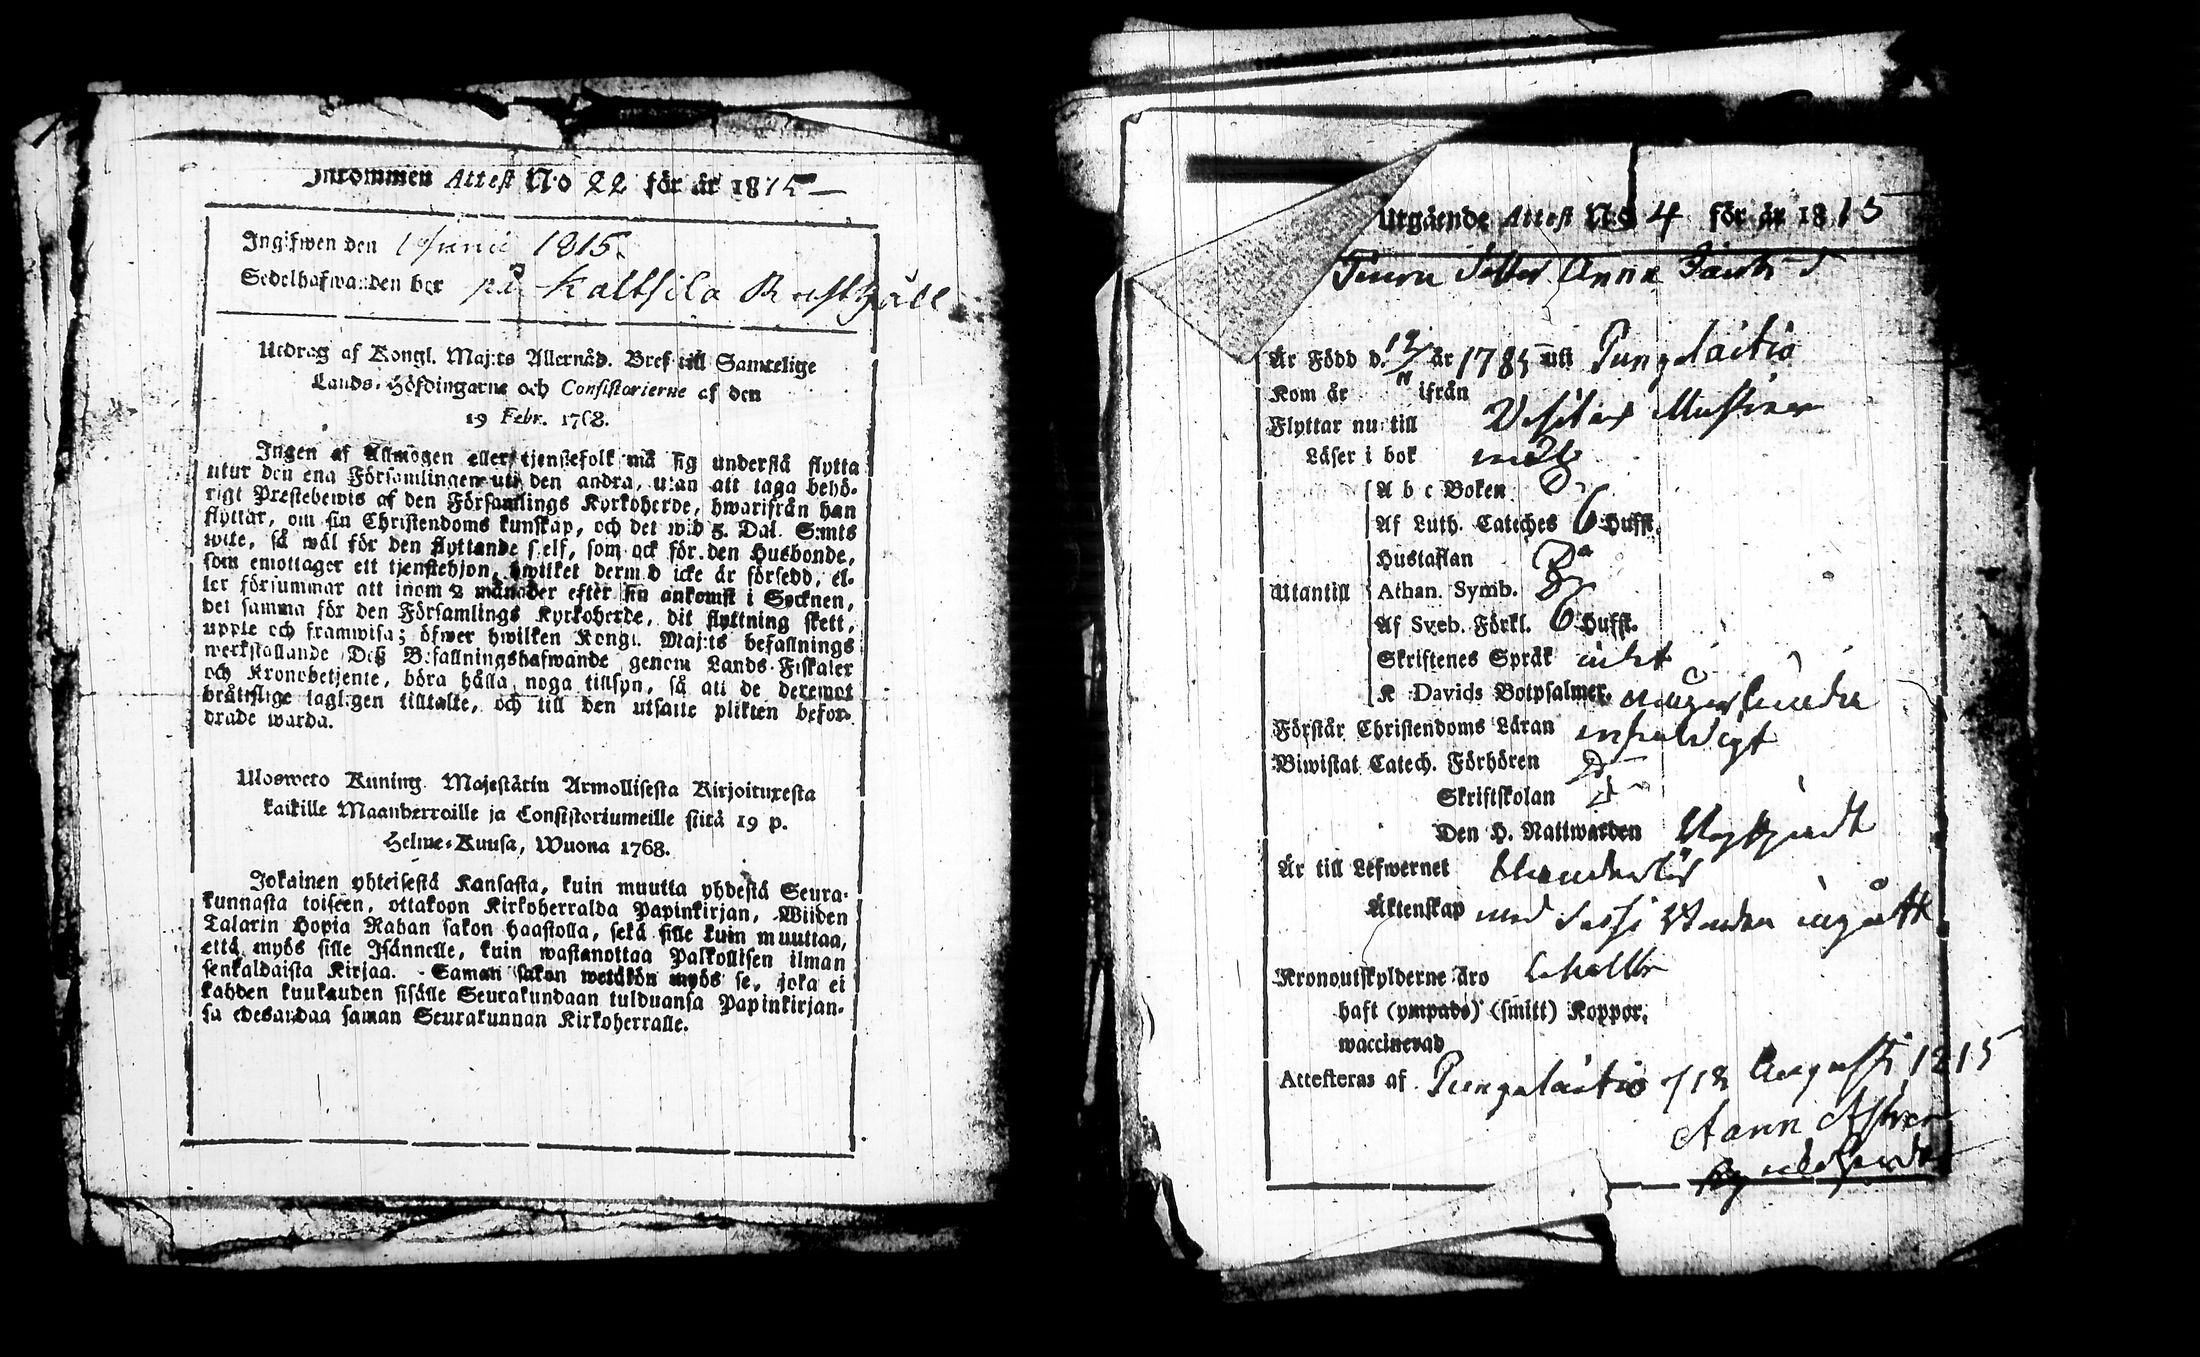 Inkommen Attest N:o 22 för år 1815
Ingifwen den 1 Junii 1815.
Sedelhafwanden bor på Kaltsila Rusthåll
Utdrag af Kongl. Maj:ts Allernåd. Bref till Samtelige
Lands-Höfdingarne och Consistorierne af den
19 Febr. 1768.
Ingen af Allmogen eller tjenstefolk må sig understå flytta
utur den ena Församlingen uti den andra, utan att taga behö-
rigt Prestebewis af den Församlings Kyrkoherde, hwarifrån han
flyttar, om sin Christendoms kunskap, och det wid 5. Dal. S:mts
wite, så wäl för den flyttande self, som ock för den Husbonde,
som emottager ett tjenstehjon, hwilket dermed icke är försedd, el-
ler försummar att inom 2 månader efter sin ankomst i Socknen,
det samma för den Församlings Kyrkoherde, dit flyttning skett,
uppte och framwisa; öfwer hwilken Kongl. Maj:ts befallnings
werkställande Deß Befallningshafwande genom Lands-Fiskaler
och Kronobetjente, böra hålla noga tillsyn, så att de deremot
bråttslige lagligen tilltalte, och till den utsatte plikten befor-
drade warda.
Ulosweto Kuning. Majestätin Armollisesta Kirjoituxesta
kaikille Maanherroille ja Consistoriumeille siitä 19 p.
Helme-Kuusa, Wuona 1768.
Jokainen yhteisestä Kansasta, kuin muutta yhdestä Seura-
kunnasta toiseen, ottakoon Kirkoherralda Papinkirjan, Wiiden
Talarin Hopia Rahan sakon haastolla, sekä sille kuin muuttaa,
että myös sille Isännelle, kuin wastanottaa Palkollisen ilman
senkaldaista Kirjaa. Saman sakon wetäkön myös se, joka ei
kahden kuukauden sisälle Seurakundaan tulduansa Papinkirjan-
sa edesandaa saman Seurakunnan Kirkoherralle.
Utgående Attest N:o 4 för år 1815
Anna Jacobs D
Är Född d. 12/ år 1785 uti Pungalaitio
Kom år " ifrån
Flyttar nu till
Läser i bok
A b c Boken
Af Luth. Cateches 6 Hufst.
Hustaflan
Utantill Athan. Symb.
Af Sveb. Förkl. 6 Hufst.
Skriftenes Språk
K Davids Botpsalmer.
Förstår Christendoms Läran enfaldigt
Biwistat Catech. Förhören
Skriftskolan
Den H. Nattwarden
Är till Lefwernet
Äktenskap med ingått
Kronoutskylderne äro
haft (ympade) (smitt) Koppor,
waccinerad
Attesteras af Pungalaitio d 18 Augusti 1815